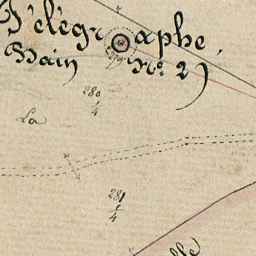 Télégraphe.
Main No. 2)
280
4
La
281
4
lle